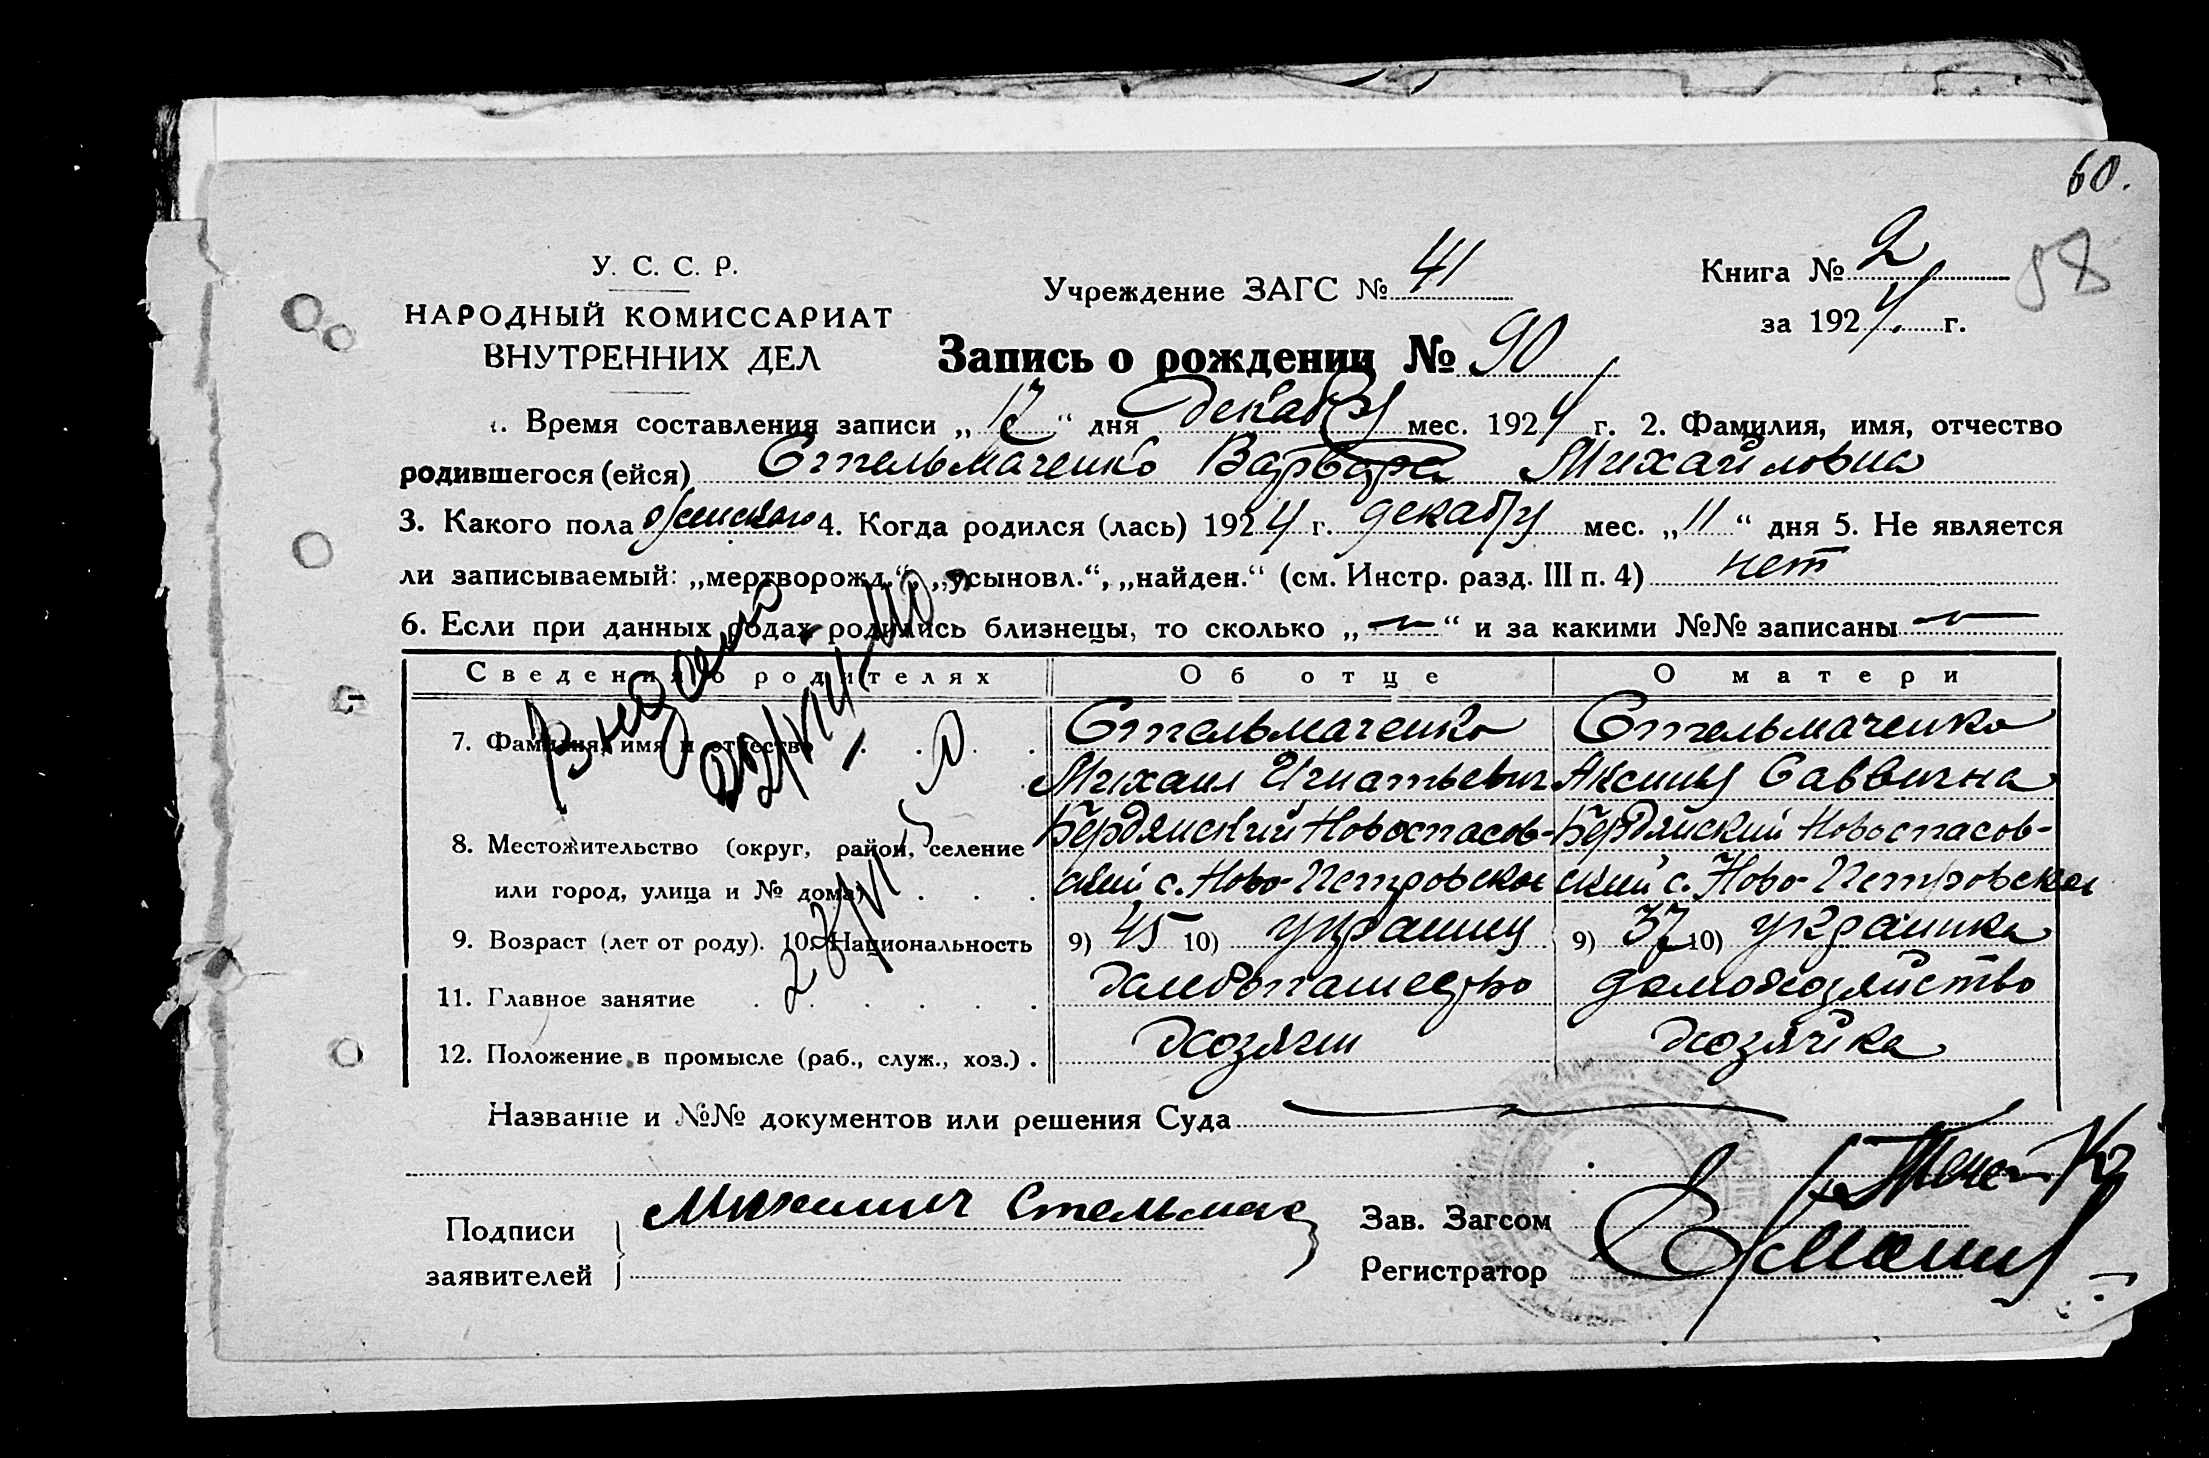 60.
58
У. С. С. Р.
НАРОДНЫЙ КОМИССАРИАТ
ВНУТРЕННИХ ДЕЛ
Учреждение ЗАГС № 41
Книга № 2
за 1924 г.
Запись о рождении № 90
1. Время составления записи „12“ дня декабря мес. 1924 г. 2. Фамилия, имя, отчество
родившегося (ейся) Стельмаченко Варвара Михайловна
3. Какого пола женского 4. Когда родился (лась) 1924 г. декабря мес. „11“ дня 5. Не является
ли записываемый: „мертворожд.“, „усыновл.“, „найден.“ (см. Инстр. разд. III п. 4) нет
6. Если при данных родах родились близнецы, то сколько „—“ и за какими №№ записаны —
Сведения о родителях Об отце О матери
7. Фамилия, имя и отчество . . . Стельмаченко Стельмаченко
Михаил Игнатьевич Аксинья Саввична
8. Местожительство (округ, район, селение Бердянский Новоспасов- Бердянский Новоспасов-
или город, улица и № дома) . . . ский с. Ново-Петровское ский с. Ново-Петровское
9. Возраст (лет от роду). 10. Национальность 9) 45 10) украинец 9) 37 10) украинка
11. Главное занятие . . . . . . Хлебопашество домохозяйство
12. Положение в промысле (раб., служ., хоз.) . Хозяин Хозяйка
Название и №№ документов или решения Суда
Подписи
заявителей
Михаил Стельмаче
Зав. Загсом
Регистратор